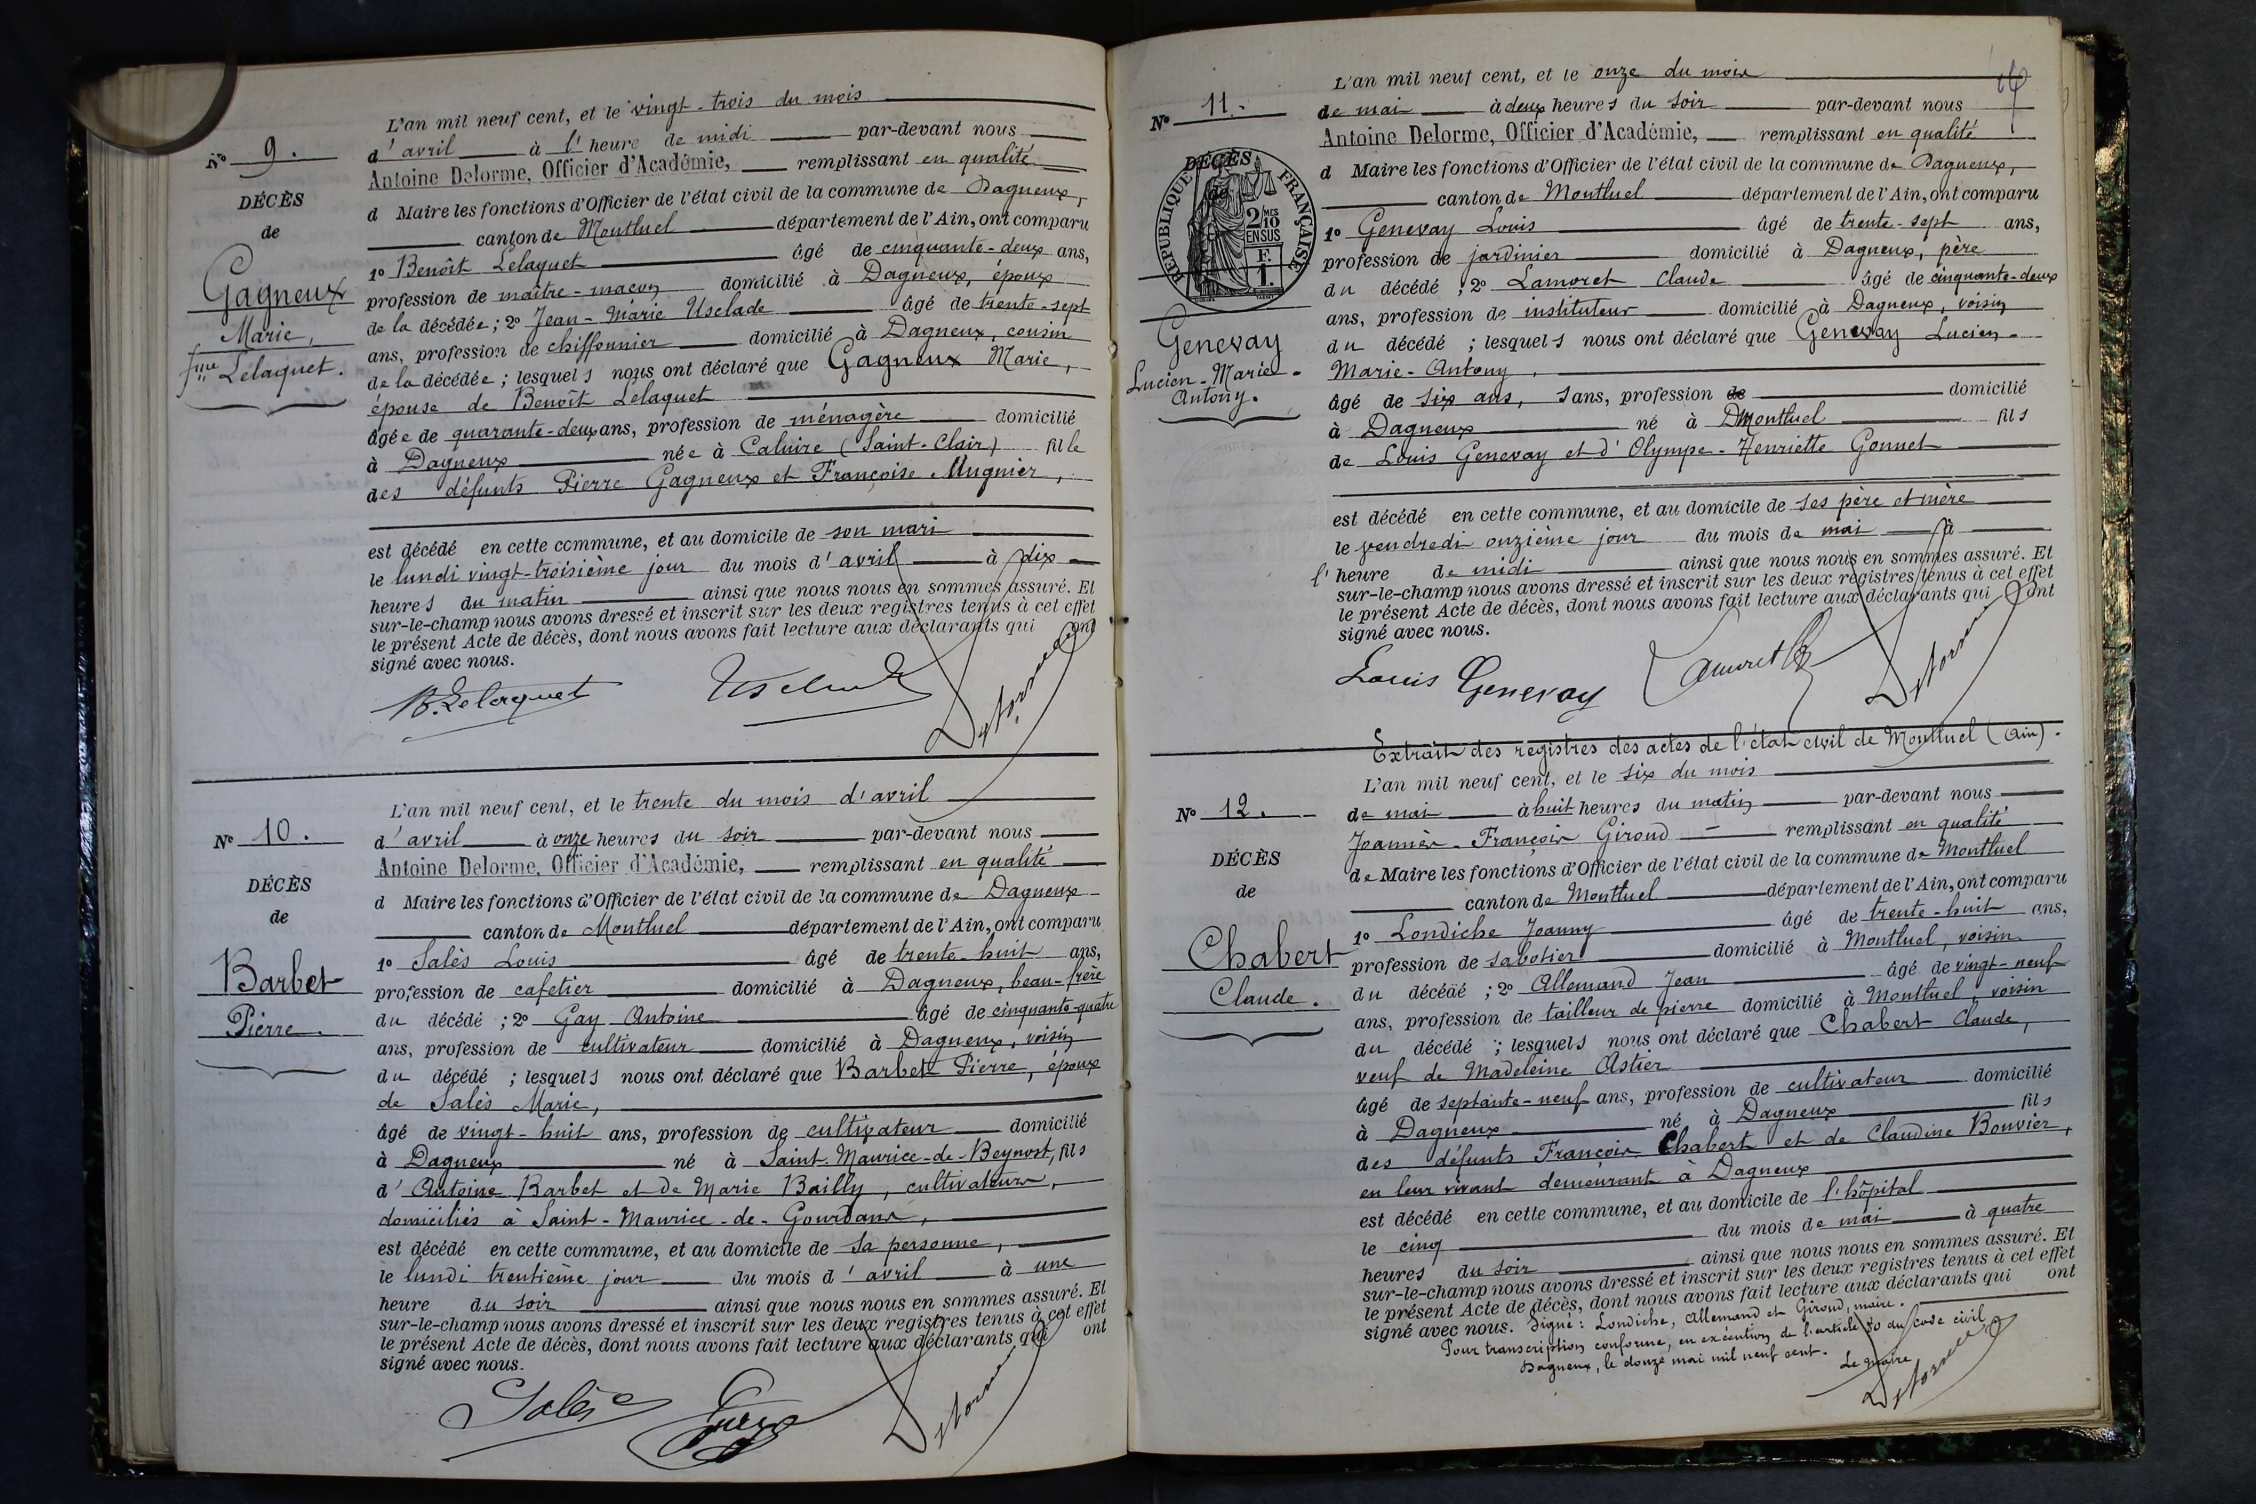 L'an mil neuf cent, et le vingt-trois du mois
N° 9.
d'avril à l'heure de midi par-devant nous
Antoine Delorme, Officier d'Académie, remplissant en qualité
DÉCÈS
d Maire les fonctions d'Officier de l'état civil de la commune de Dagneux,
de
canton de Montluel département de l'Ain, ont comparu
Gagneux
1° Benoît Lelaquet âgé de cinquante-deux ans,
profession de maître-maçon domicilié à Dagneux, époux
Marie,
de la décédée; 2° Jean-Marie Usclade âgé de trente-sept
fme Lelaquet.
ans, profession de chiffonnier domicilié à Dagneux, cousin
de la décédée; lesquels nous ont déclaré que Gagneux Marie,
épouse de Benoît Lelaquet
âgée de quarante-deux ans, profession de ménagère domicilié
à Dagneux née à Caluire (Saint-Clair) fille
des défunts Pierre Gagneux et Françoise Mugnier,
est décédé en cette commune, et au domicile de son mari
le lundi vingt-troisième jour du mois d'avril à dix
heures du matin ainsi que nous nous en sommes assuré. Et
sur-le-champ nous avons dressé et inscrit sur les deux registres tenus à cet effet
le présent Acte de décès, dont nous avons fait lecture aux déclarants qui ont
signé avec nous.
B. Lelaquet Usclade Delorme
L'an mil neuf cent, et le trente du mois d'avril
N° 10.
d'avril à onze heures du soir par-devant nous
Antoine Delorme, Officier d'Académie, remplissant en qualité
DÉCÈS
d Maire les fonctions d'Officier de l'état civil de la commune de Dagneux
de
canton de Montluel département de l'Ain, ont comparu
1° Salès Louis âgé de trente-huit ans,
Barbet
profession de cafetier domicilié à Dagneux, beau-frère
Pierre.
du décédé; 2° Gay Antoine âgé de cinquante-quatre
ans, profession de cultivateur domicilié à Dagneux, voisin
du décédé; lesquels nous ont déclaré que Barbet Pierre, époux
de Salès Marie,
âgé de vingt-huit ans, profession de cultivateur domicilié
à Dagneux né à Saint-Maurice-de-Beynost, fils
d'Antoine Barbet et de Marie Bailly, cultivateurs,
domiciliés à Saint-Maurice-de-Gourdans,
est décédé en cette commune, et au domicile de sa personne,
le lundi trentième jour du mois d'avril à une
heure du soir ainsi que nous nous en sommes assuré. Et
sur-le-champ nous avons dressé et inscrit sur les deux registres tenus à cet effet
le présent Acte de décès, dont nous avons fait lecture aux déclarants qui ont
signé avec nous.
Salès Delorme
L'an mil neuf cent, et le onze du mois
N° 11.
de mai à deux heures du soir par-devant nous
Antoine Delorme, Officier d'Académie, remplissant en qualité
DÉCÈS
de
RÉPUBLIQUE FRANÇAISE
2/10 MES
EN SUS
F.
1.
d Maire les fonctions d'Officier de l'état civil de la commune de Dagneux,
canton de Montluel département de l'Ain, ont comparu
1° Genevay Louis âgé de trente-sept ans,
profession de jardinier domicilié à Dagneux, père
du décédé; 2° Lamoret Claude âgé de cinquante-deux
ans, profession de instituteur domicilié à Dagneux, voisin
Genevay
du décédé; lesquels nous ont déclaré que Genevay Lucien-
Lucien-Marie-
Marie-Antony,
Antony.
âgé de six ans, sans, profession de domicilié
à Dagneux né à Montluel fils
de Louis Genevay et d'Olympe-Henriette Gonnet
est décédé en cette commune, et au domicile de ses père et mère
le vendredi onzième jour du mois de mai à
l'heure de midi ainsi que nous nous en sommes assuré. Et
sur-le-champ nous avons dressé et inscrit sur les deux registres tenus à cet effet
le présent Acte de décès, dont nous avons fait lecture aux déclarants qui ont
signé avec nous.
Louis Genevay Lamoret Delorme
Extrait des registres des actes de l'état civil de Montluel (Ain).
L'an mil neuf cent, et le six du mois
N° 12.
de mai à huit heures du matin par-devant nous
Joannès-François Giroud remplissant en qualité
DÉCÈS
de Maire les fonctions d'Officier de l'état civil de la commune de Montluel
de
canton de Montluel département de l'Ain, ont comparu
1° Londiche Joanny âgé de trente-huit ans,
Chabert
profession de sabotier domicilié à Montluel, voisin
Claude.
du décédé; 2° Allemand Jean âgé de vingt-neuf
ans, profession de tailleur de pierre domicilié à Montluel, voisin
du décédé; lesquels nous ont déclaré que Chabert Claude,
veuf de Madeleine Astier
âgé de septante-neuf ans, profession de cultivateur domicilié
à Dagneux né à Dagneux fils
des défunts François Chabert et de Claudine Bouvier,
en leur vivant demeurant à Dagneux
est décédé en cette commune, et au domicile de l'hôpital
le cinq du mois de mai à quatre
heures du soir ainsi que nous nous en sommes assuré. Et
sur-le-champ nous avons dressé et inscrit sur les deux registres tenus à cet effet
le présent Acte de décès, dont nous avons fait lecture aux déclarants qui ont
signé avec nous. Signé: Londiche, Allemand et Giroud, maire.
Pour transcription conforme, en exécution de l'article 80 du code civil
Dagneux, le douze mai mil neuf cent. Le maire
Delorme